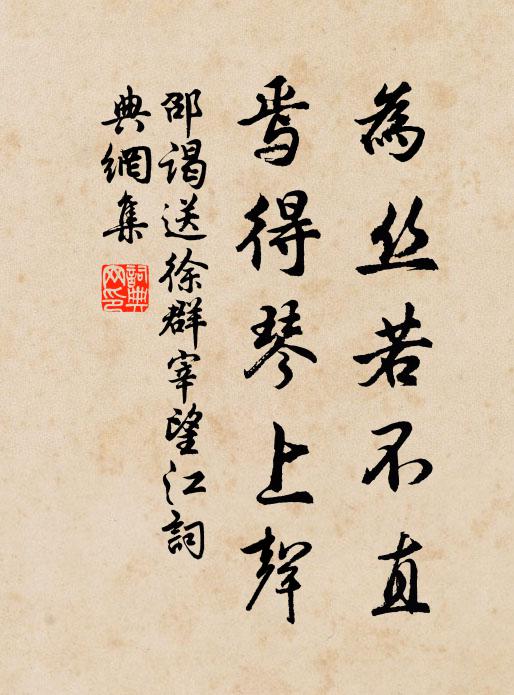 為丝若不直
焉得琴上聲
邵谒送徐群宰望江詞
典網集
詞典
网印